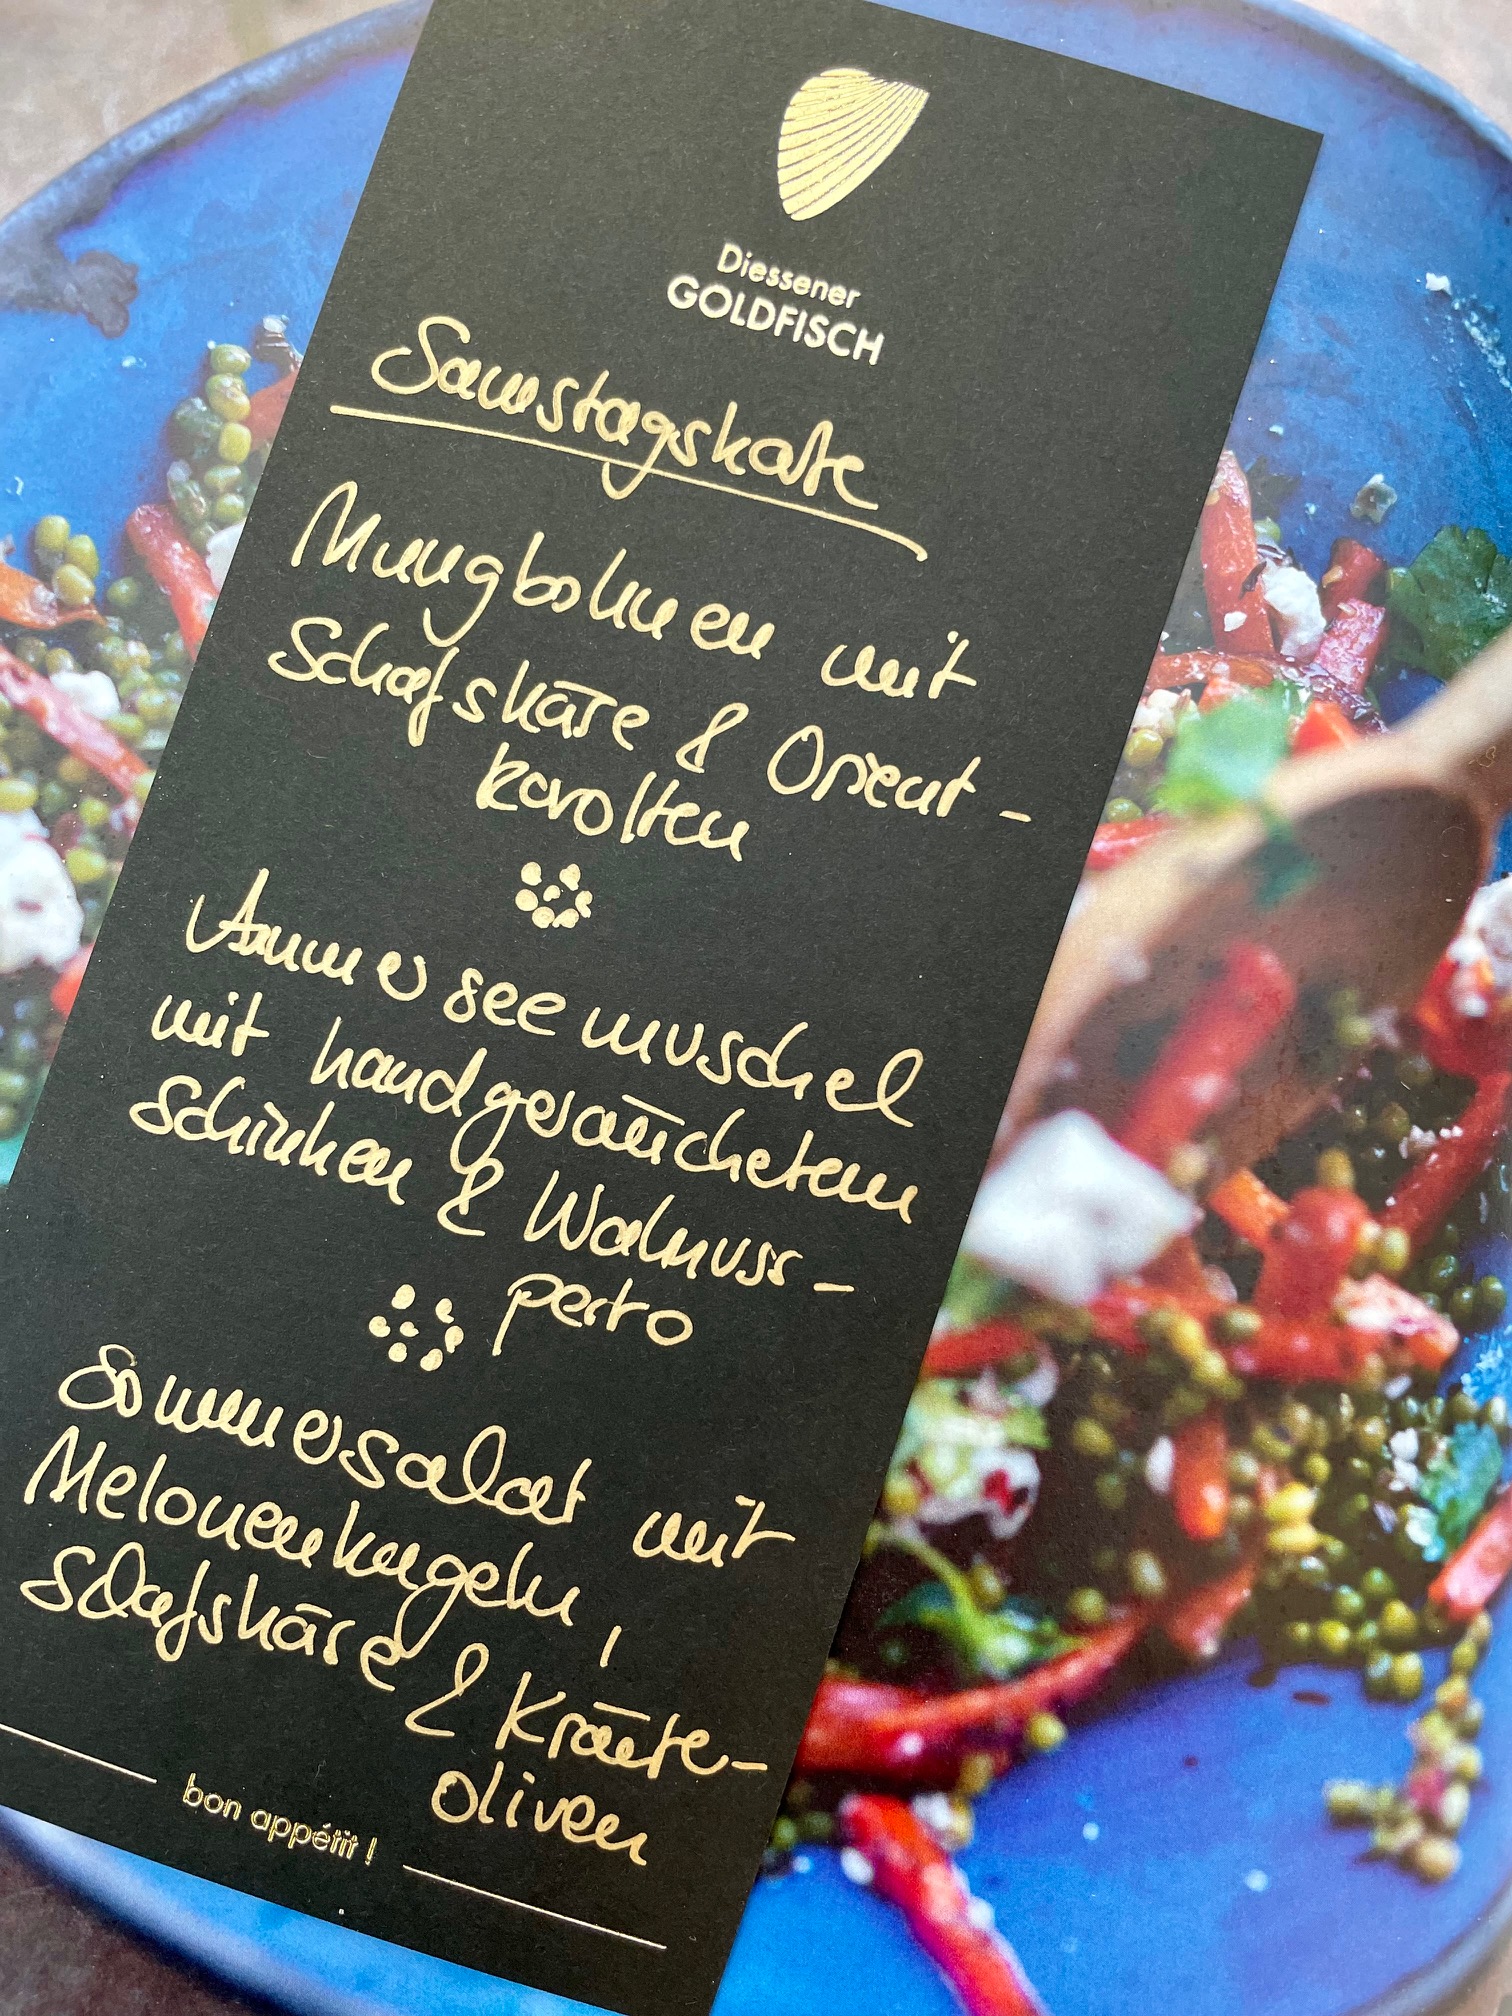 Diessener
GOLDFISCH
Samstagskarte
Mungbohnen mit
Schafskäse & Orient-
karotten
Ammerseemuschel
mit handgeräuchertem
Schinken & Walnuss-
pesto
Sommersalat mit
Melonenkugeln,
Schafskäse & Kräuter-
oliven
bon appétit !